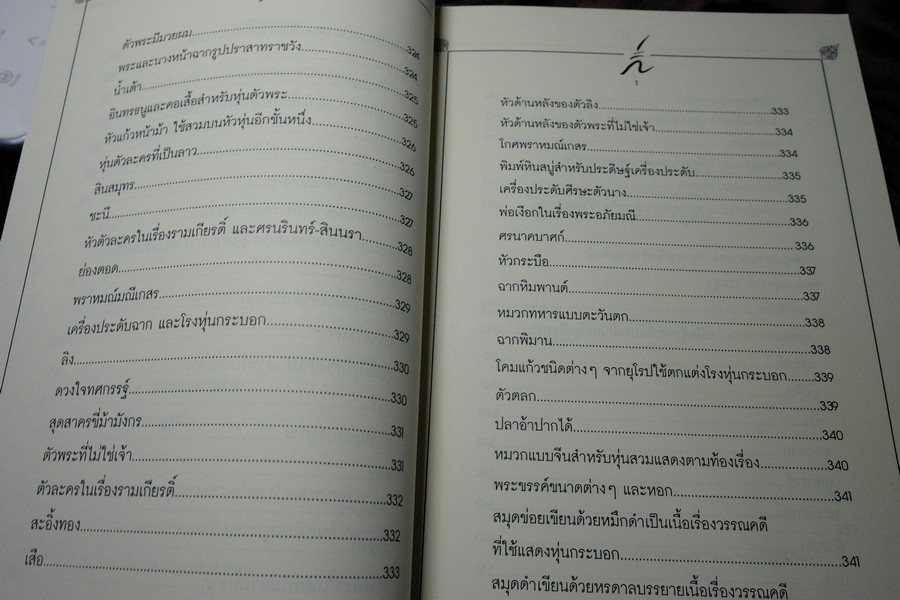 ตัวพระมีมวยผม 324
พระและนางหน้าฉากรูปปราสาทราชวัง 324
น้ำเต้า 325
อินทรธนูและคอเสื้อสำหรับหุ่นตัวพระ 325
หัวแก้วหน้าม้า ใช้สวมบนหัวหุ่นอีกชั้นหนึ่ง 326
หุ่นตัวละครที่เป็นลาว 326
สินสมุทร 327
ชะนี 327
หัวตัวละครในเรื่องรามเกียรติ์ และศรนรินทร์-สินนรา 328
ย่องตอด 328
พราหมณ์มณีเกสร 329
เครื่องประดับฉาก และโรงหุ่นกระบอก 329
ลิง 330
ดวงใจทศกรรฐ์ 330
สุดสาครขี่ม้ามังกร 331
ตัวพระที่ไม่ใช่เจ้า 331
ตัวละครในเรื่องรามเกียรติ์ 332
สะอิ้งทอง 332
เสือ 333
หัวด้านหลังของตัวลิง 333
หัวด้านหลังของตัวพระที่ไม่ใช่เจ้า 334
โกศพราหมณ์เกสร 334
พิมพ์หินสบู่สำหรับประดิษฐ์เครื่องประดับ 335
เครื่องประดับศีรษะตัวนาง 335
พ่อเงือกในเรื่องพระอภัยมณี 336
ศรนาคบาศก์ 336
หัวกระบือ 337
ฉากหิมพานต์ 337
หมวกทหารแบบตะวันตก 338
ฉากพิมาน 338
โคมแก้วชนิดต่างๆ จากยุโรปใช้ตกแต่งโรงหุ่นกระบอก 339
ตัวตลก 339
ปลาอ้าปากได้ 340
หมวกแบบจีนสำหรับหุ่นสวมแสดงตามท้องเรื่อง 340
พระขรรค์ขนาดต่างๆ และหอก 341
สมุดข่อยเขียนด้วยหมึกดำเป็นเนื้อเรื่องวรรณคดี
ที่ใช้แสดงหุ่นกระบอก 341
สมุดดำเขียนด้วยหรดาลบรรยายเนื้อเรื่องวรรณคดี